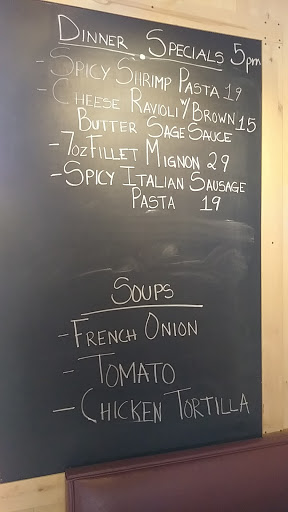 DINNER SPECIALS 5pm
- SPICY SHRIMP PASTA 19
- CHEESE RAVIOLI W/ BROWN 15
BUTTER SAGE SAUCE
- 7oz FILLET MIGNON 29
- SPICY ITALIAN SAUSAGE
PASTA 19
SOUPS
- FRENCH ONION
- TOMATO
- CHICKEN TORTILLA